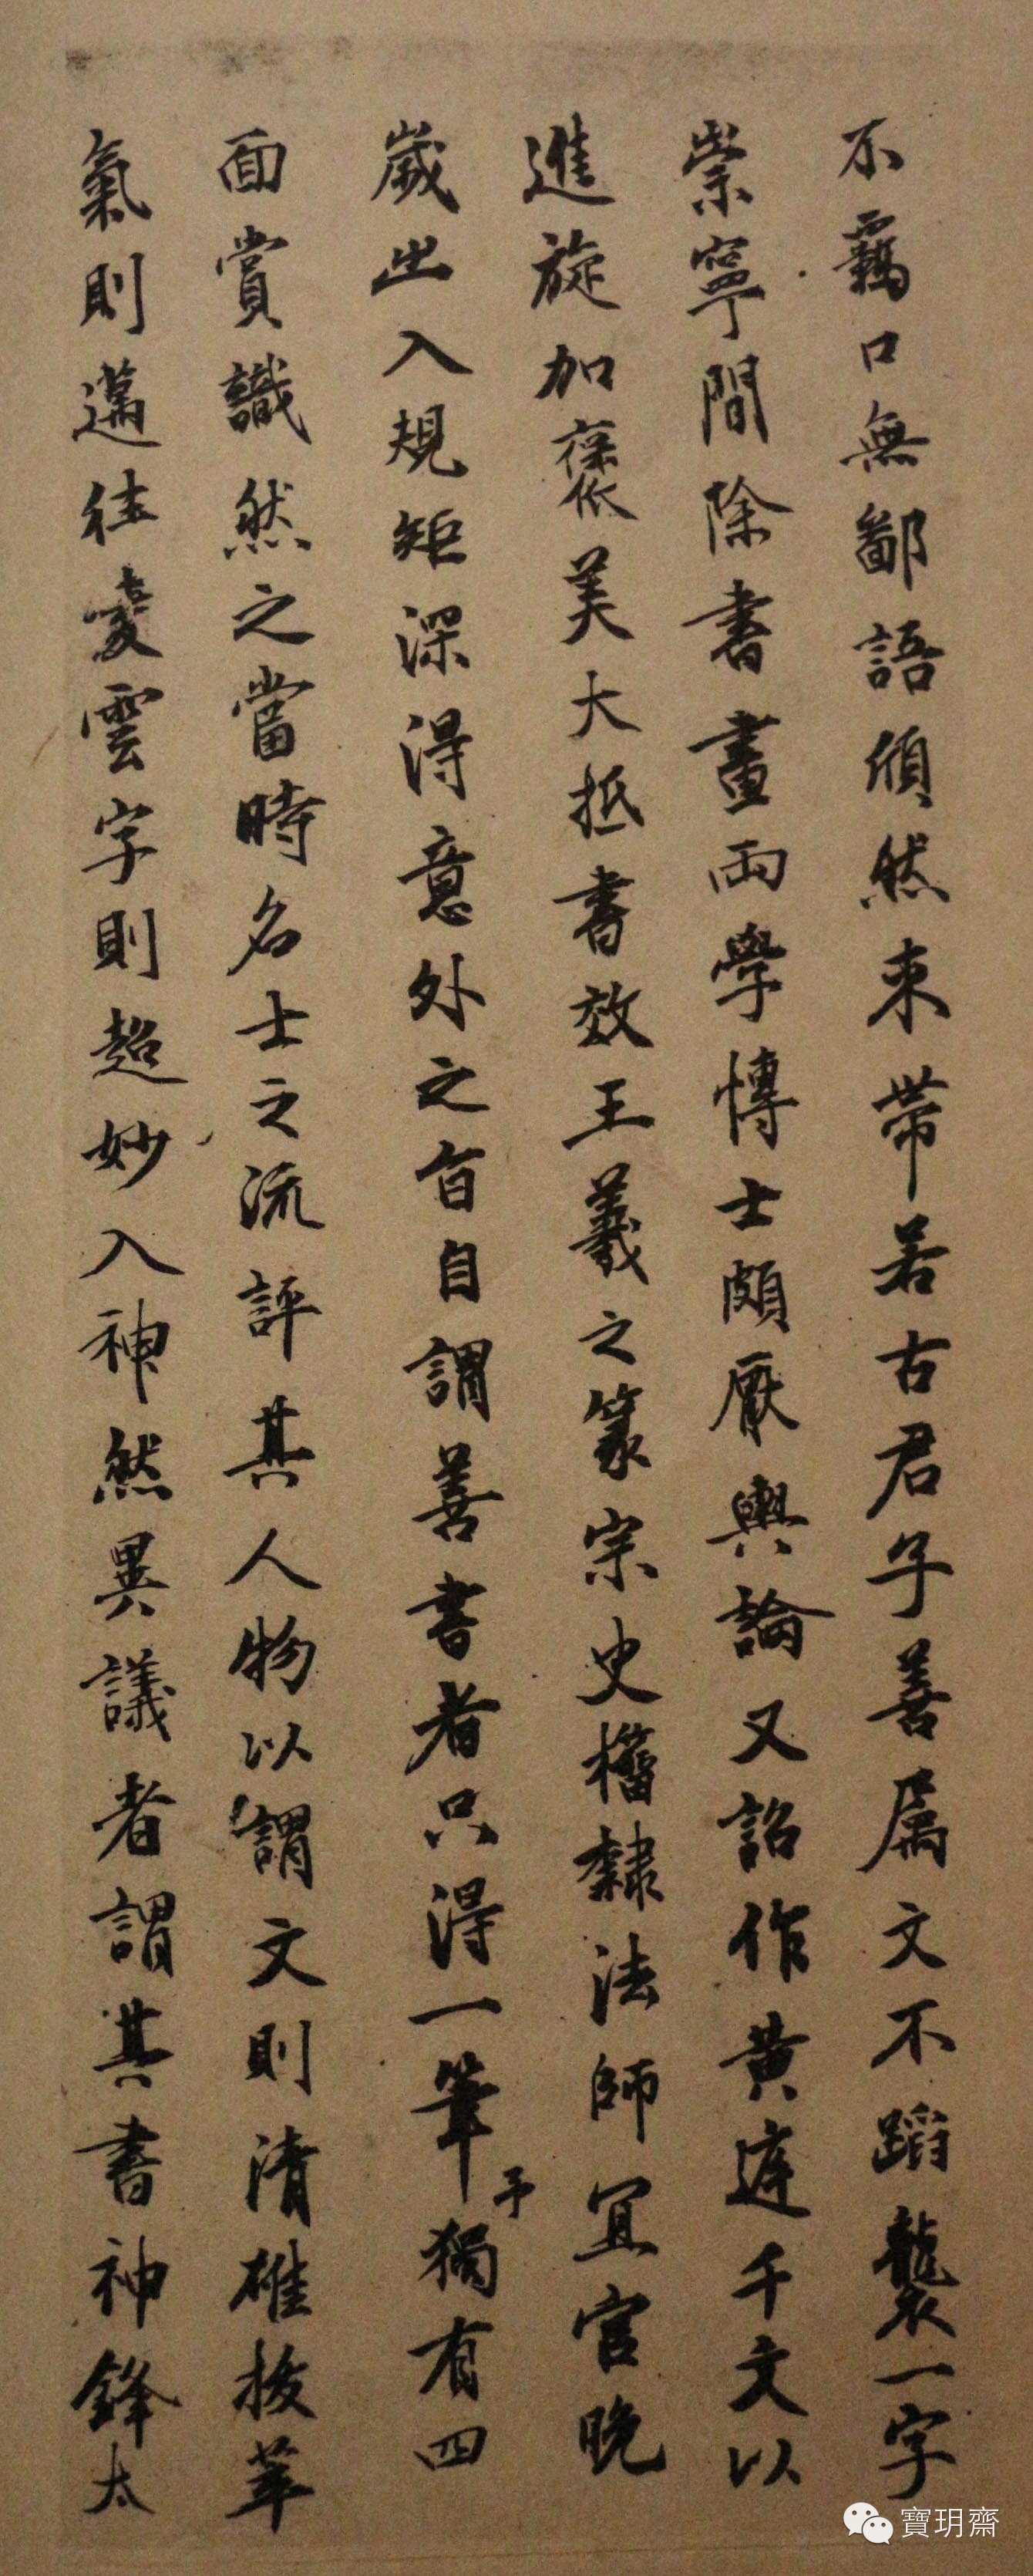 不羈口無鄙語頎然束帶若古君子善属文不蹈襲一字
崇寧間除書畫兩學博士頗厭輿論又詔作黄庭千文以
進旋加褒美大抵書效王羲之篆宗史籀隸法師宜官晚
歲出入規矩深得意外之旨自謂善書者只得一筆予獨有四
面賞識然之當時名士之流評其人物以謂文則清雄拔萃
氣則邁往凌雲字則超妙入神然異議者謂其書神鋒太
寶玥齋